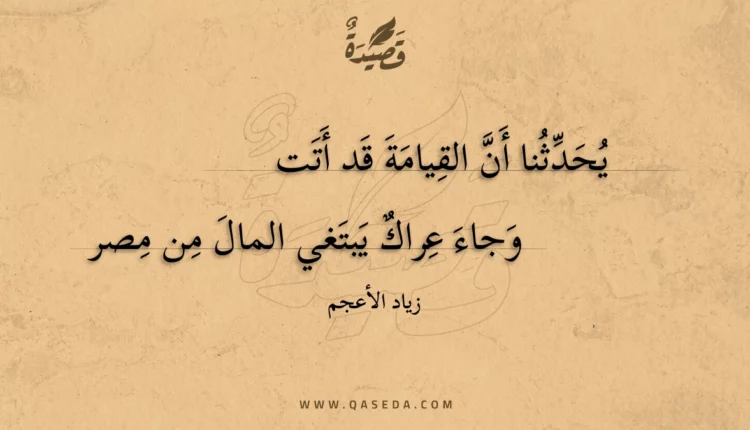 قَصِيْدَةٌ
يُحَدِّثُنا أَنَّ القِيامَةَ قَد أَتَت
وَجاءَ عِراكٌ يَبتَغي المالَ مِن مِصر
زياد الأعجم
WWW.QASEDA.COM